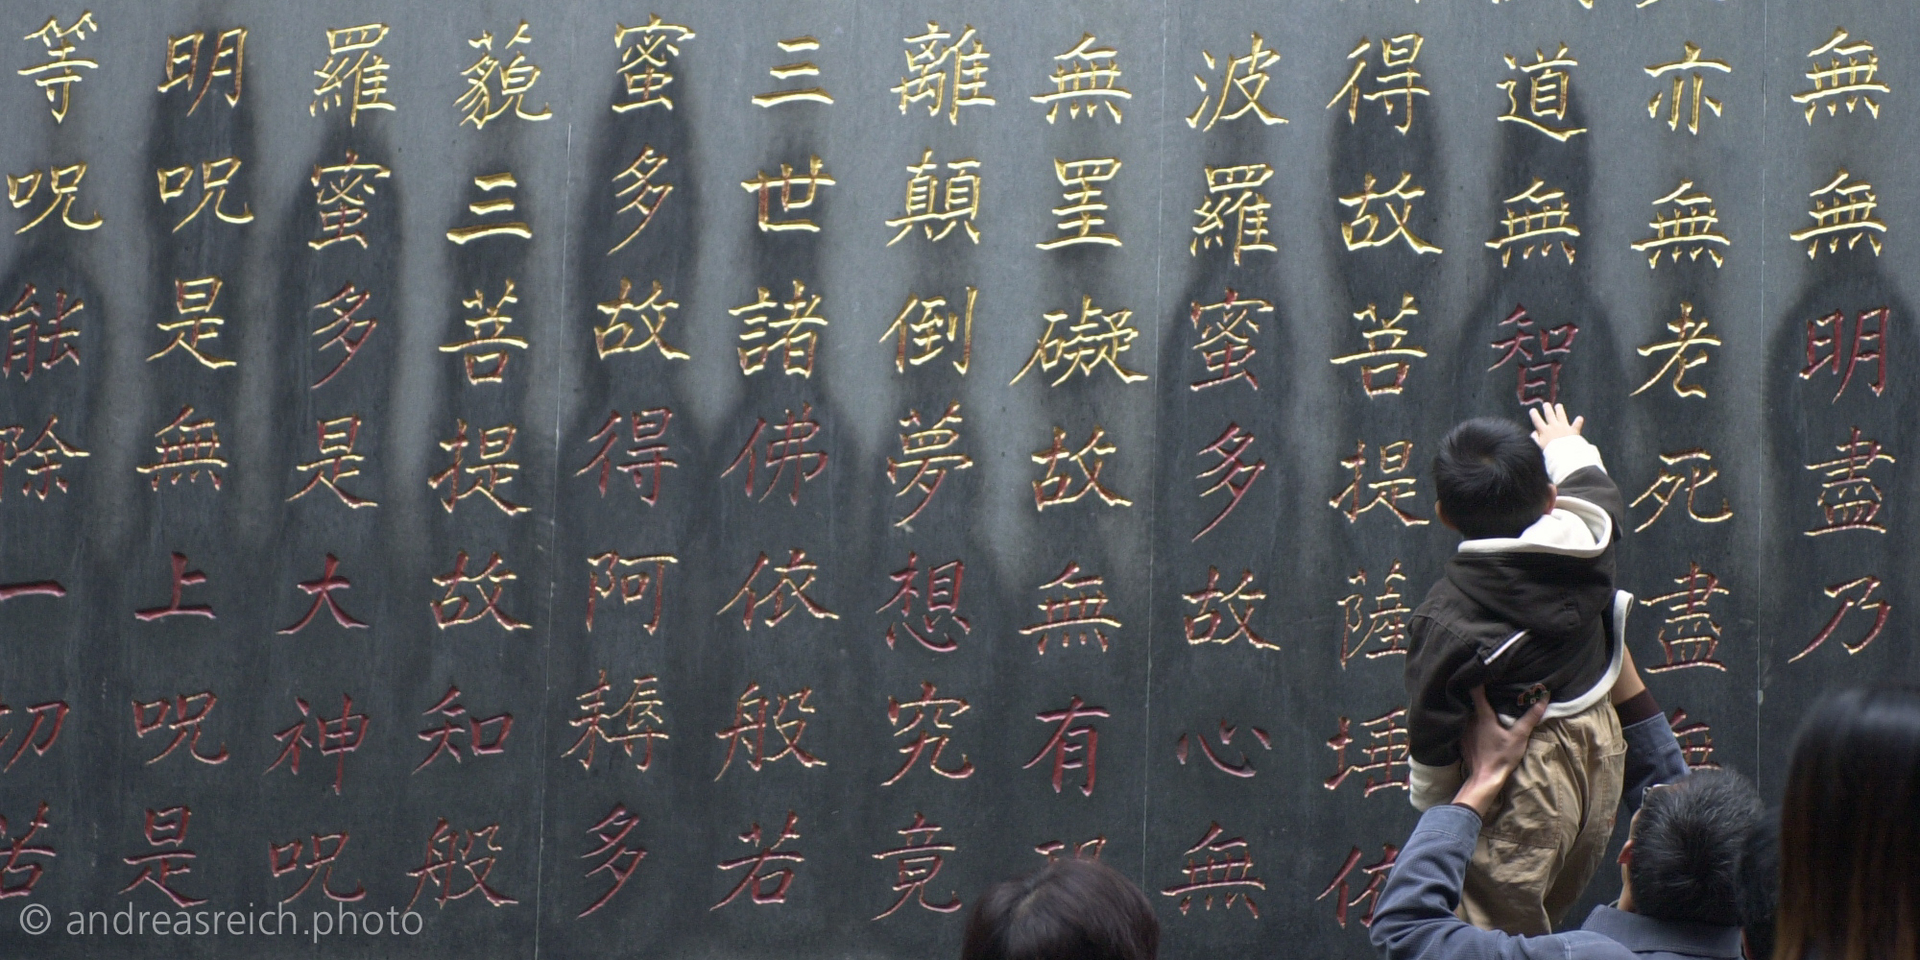 無無明盡乃
亦無老死盡無
道無智
得故菩提薩埵依
波羅蜜多故心無
無罣礙故無有
離顛倒夢想究竟
三世諸佛依般若
蜜多故得阿耨多
藐三菩提故知般
羅蜜多是大神呪
明呪是無上呪是
等呪能除一切苦
© andreasreich.photo